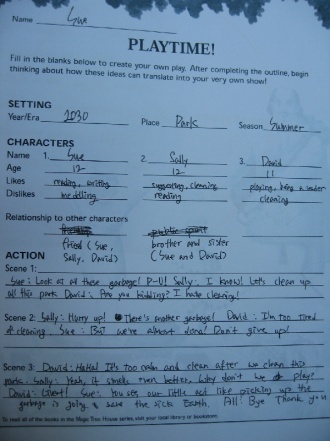 Name Sue
PLAYTIME!
Fill in the blanks below to create your own play. After completing the outline, begin
thinking about how these ideas can translate into your very own show!
SETTING
Year/Era 2030 Place Park Season Summer
CHARACTERS
Name 1. Sue 2. Sally 3. David
Age 12 12 11
Likes reading, writing suggesting, cleaning playing, being a leader
Dislikes meddling reading cleaning
Relationship to other characters
friend (Sue, brother and sister
Sally, David) (Sue and David)
ACTION
Scene 1:
Sue: Look at all these garbage! P-U! Sally: I know! Let's clean up
all this park David: Are you kidding? I hate cleaning!
Scene 2: Sally: Hurry up! There's another garbage! David: I'm too tired
of cleaning. Sue: But we're almost done! Don't give up!
Scene 3: David: HaHa! It's too calm and clean after we clean this
park. Sally: Yeah, it smells even better. Why don't we play?
David: Great! Sue: You see, our little act like picking up the
garbage is going to save the sick Earth. All: Bye Thank you
To read all of the books in the Magic Tree House series, visit your local library or bookstore.